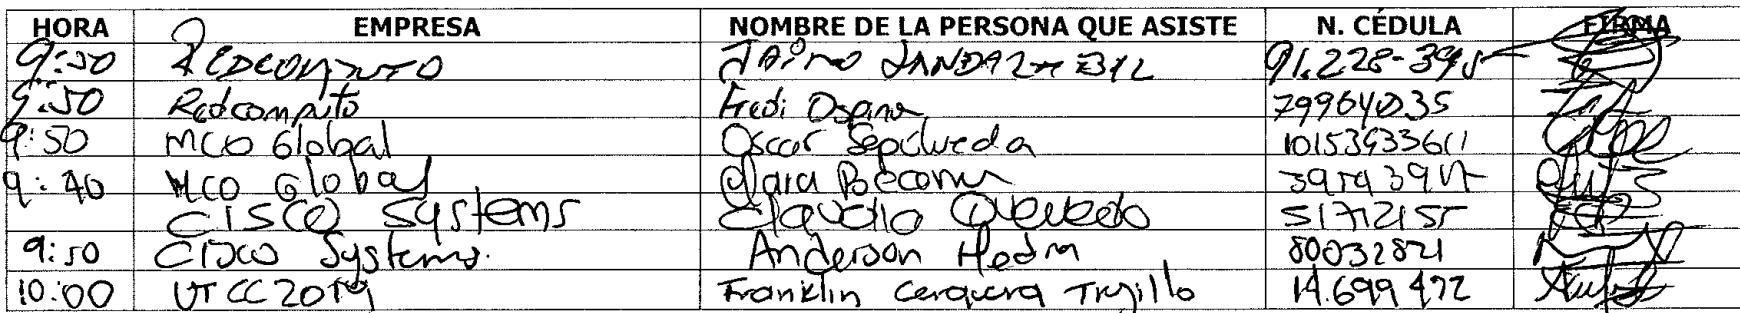 HORA EMPRESA NOMBRE DE LA PERSONA QUE ASISTE N. CÉDULA FIRMA
9:50 REDCOMPUTO JAIRO 91.228-395
9:50 Redcomputo Fredi Ospina 79964035
9:50 MCO Global Oscar Sepulveda
9:40 MCO Global
CISCO Systems Claudia Quevedo 51712155
9:50 Cisco Systems. Anderson 80032821
10:00 UT CC 2019 Franklin Cerquera Trujillo 14.699472